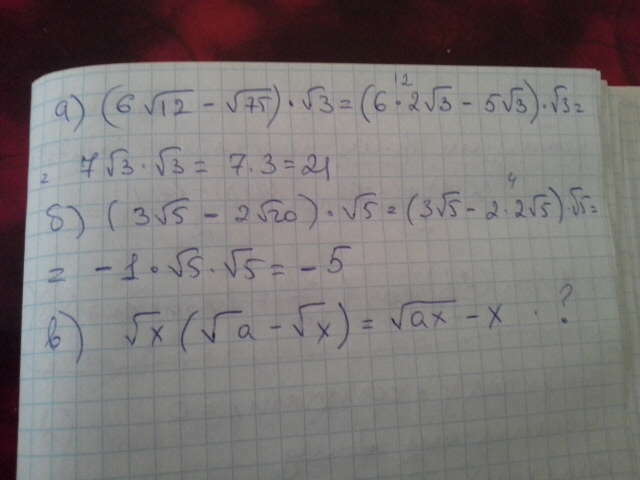 а) (6√12 - √75) · √3 = (6 · 2√3 - 5√3) · √3 =
12
= 7√3 · √3 = 7 · 3 = 21
б) (3√5 - 2√20) · √5 = (3√5 - 2 · 2√5) · √5 =
4
= -1 · √5 · √5 = -5
в) √x (√a - √x) = √ax - x . ?